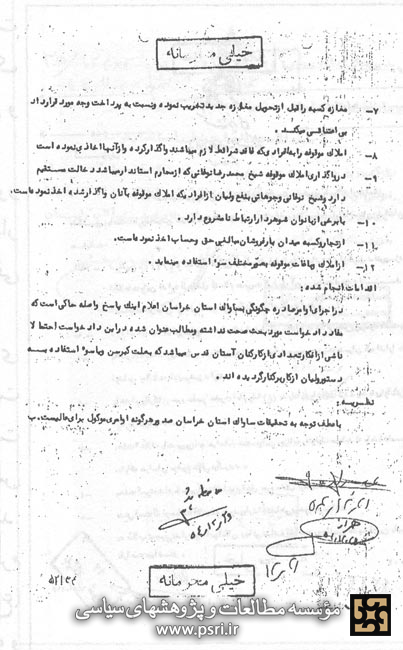 خیلی محرمانه
۷- مغازه کسبه را قبل از تحویل مغازه جدید تخریب نموده و نسبت به پرداخت وجه مورد قرارداد
بی اعتنائی میکند.
۸- املاک موقوفه را به افرادی که فاقد شرائط لازم میباشند واگذار کرده و از آنها اخاذی نموده است
۹- در واگذاری املاک موقوفه شیخ محمد رضا نوقانی که از محارم استاندار میباشد دخالت مستقیم
دارد و شیخ نوقانی وجوهاتی بنفع ولیان از افرادیکه املاک موقوفه بآنان واگذار شده اخذ نموده است.
۱۰- با برخی از بانوان شوهردار ارتباط نامشروع دارد.
۱۱- از تجار و کسبه میدان بار فروشان مبالغی حق و حساب اخذ نموده است.
۱۲- از املاک و باغات موقوفه بصور مختلف سوء استفاده مینماید.
اقدامات انجام شده:
در اجرای اوامر صادره چگونگی بساواک استان خراسان اعلام اینک پاسخ واصله حاکی است که
مفاد دادخواست مورد بحث صحت نداشته و مطالب عنوان شده در این دادخواست احتمالا
ناشی از افکار تعدادی از کارکنان آستان قدس میباشد که بعلت کبر سن و یا سوء استفاده بـــه
دستور ولیان از کار برکنار گردیده اند.
نظریـــه:
با عطف توجه به تحقیقات ساواک استان خراسان صدور هرگونه اوامری موکول برای عالیست. ب
خیلی محرمانه
مؤسسه مطالعات و پژوهشهای سیاسی
www.psri.ir